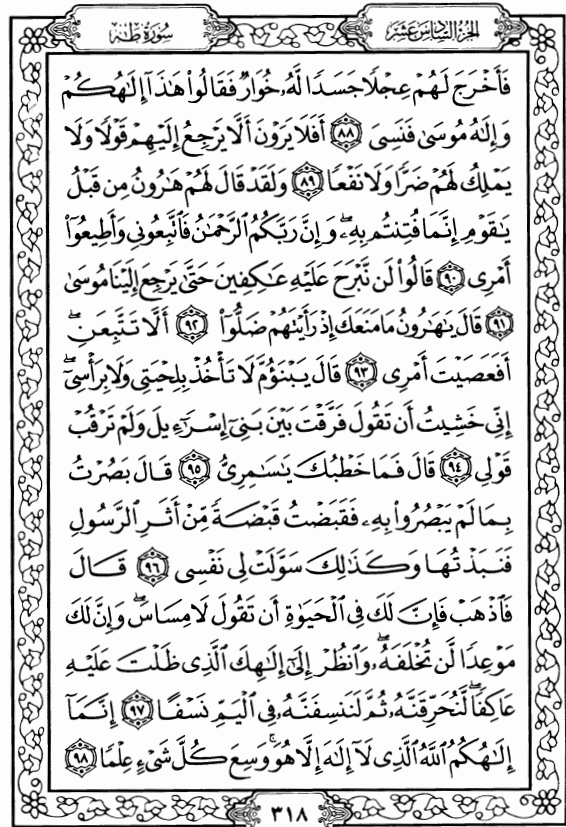 الجزء السادس عشر
سورة طه
فَأَخْرَجَ لَهُمْ عِجْلًا جَسَدًا لَّهُۥ خُوَارٌ فَقَالُوا۟ هَٰذَآ إِلَٰهُكُمْ
وَإِلَٰهُ مُوسَىٰ فَنَسِىَ ٨٨ أَفَلَا يَرَوْنَ أَلَّا يَرْجِعُ إِلَيْهِمْ قَوْلًا وَلَا
يَمْلِكُ لَهُمْ ضَرًّا وَلَا نَفْعًا ٨٩ وَلَقَدْ قَالَ لَهُمْ هَٰرُونُ مِن قَبْلُ
يَٰقَوْمِ إِنَّمَا فُتِنتُم بِهِۦ ۖ وَإِنَّ رَبَّكُمُ الرَّحْمَٰنُ فَاتَّبِعُونِى وَأَطِيعُوٓا۟
أَمْرِى ٩٠ قَالُوا۟ لَن نَّبْرَحَ عَلَيْهِ عَٰكِفِينَ حَتَّىٰ يَرْجِعَ إِلَيْنَا مُوسَىٰ
٩١ قَالَ يَٰهَٰرُونُ مَا مَنَعَكَ إِذْ رَأَيْتَهُمْ ضَلُّوٓا۟ ٩٢ أَلَّا تَتَّبِعَنِ ۖ
أَفَعَصَيْتَ أَمْرِى ٩٣ قَالَ يَبْنَؤُمَّ لَا تَأْخُذْ بِلِحْيَتِى وَلَا بِرَأْسِىٓ ۖ
إِنِّى خَشِيتُ أَن تَقُولَ فَرَّقْتَ بَيْنَ بَنِىٓ إِسْرَٰٓءِيلَ وَلَمْ تَرْقُبْ
قَوْلِى ٩٤ قَالَ فَمَا خَطْبُكَ يَٰسَٰمِرِىُّ ٩٥ قَالَ بَصُرْتُ
بِمَا لَمْ يَبْصُرُوا۟ بِهِۦ فَقَبَضْتُ قَبْضَةً مِّنْ أَثَرِ الرَّسُولِ
فَنَبَذْتُهَا وَكَذَٰلِكَ سَوَّلَتْ لِى نَفْسِى ٩٦ قَالَ
فَاذْهَبْ فَإِنَّ لَكَ فِى الْحَيَوٰةِ أَن تَقُولَ لَا مِسَاسَ ۖ وَإِنَّ لَكَ
مَوْعِدًا لَّن تُخْلَفَهُۥ ۖ وَانظُرْ إِلَىٰٓ إِلَٰهِكَ الَّذِى ظَلْتَ عَلَيْهِ
عَاكِفًا ۖ لَّنُحَرِّقَنَّهُۥ ثُمَّ لَنَنسِفَنَّهُۥ فِى الْيَمِّ نَسْفًا ٩٧ إِنَّمَآ
إِلَٰهُكُمُ اللَّهُ الَّذِى لَآ إِلَٰهَ إِلَّا هُوَ ۚ وَسِعَ كُلَّ شَىْءٍ عِلْمًا ٩٨
٣١٨